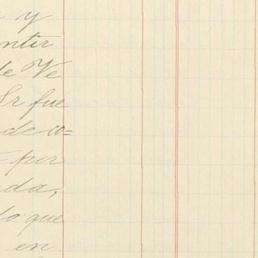 y
ntir
de Ve
Sr fue
de co=
per
da,
lo que
en